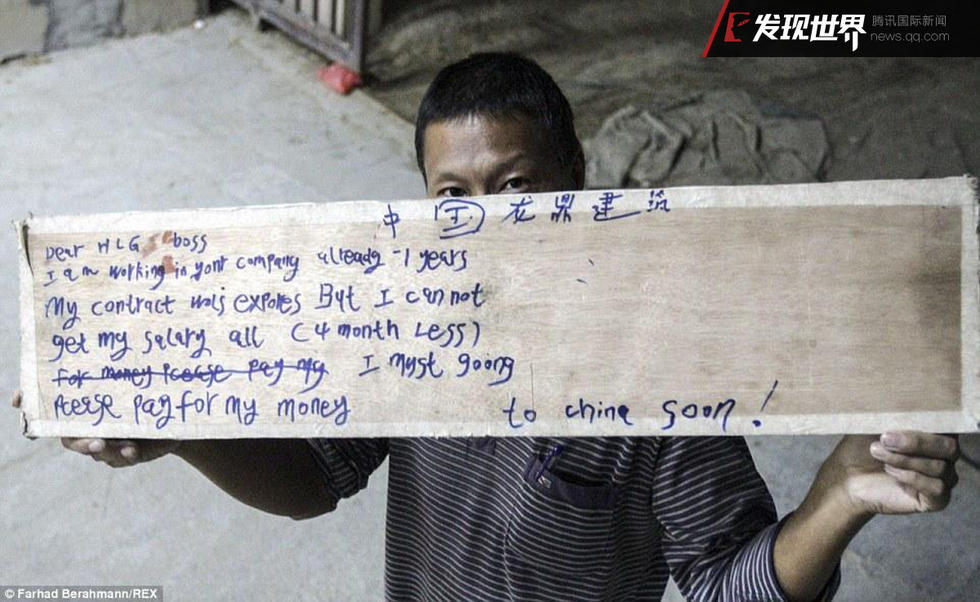 发现世界
腾讯国际新闻
news.qq.com
中国龙鼎建筑
Dear HLG boss
I am working in your company already -1 years
My contract was expores But I can not
get my salary all (4 month Less)
For money Please pay my I must goong
Please pay for my money to china soon!
© Farhad Berahmann/REX